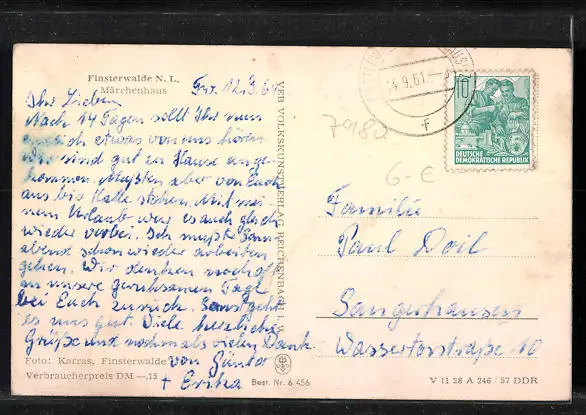 Finsterwalde N. L.
Märchenhaus
Fw. 12.9.61
Ihr Lieben
Nach 14 Tagen sollt Ihr nun
endlich etwas von uns hören.
Wir sind gut zu Hause ange-
kommen. Mußten aber von Euch
aus bis Halle stehen. Mit mei-
nem Urlaub war es auch gleich
wieder vorbei. Ich mußte Sonn-
abend schon wieder arbeiten
gehen. Wir denken noch oft
an unsere geruhsamen Tage
bei Euch zurück. Sonst geht
es uns gut. Viele herzliche
Grüße und nochmals vielen Dank
von Günter
+ Erika
Foto: Karras, Finsterwalde
Verbraucherpreis DM —,15
Best. Nr. 6 456
VEB VOLKSKUNSTVERLAG REICHENBACH I. V.
9.61
10
DEUTSCHE
DEMOKRATISCHE REPUBLIK
7980
6-€
Familie
Paul Doil
Sangerhausen
Wassertorstraße 10
V 11 28 A 246 / 57 DDR